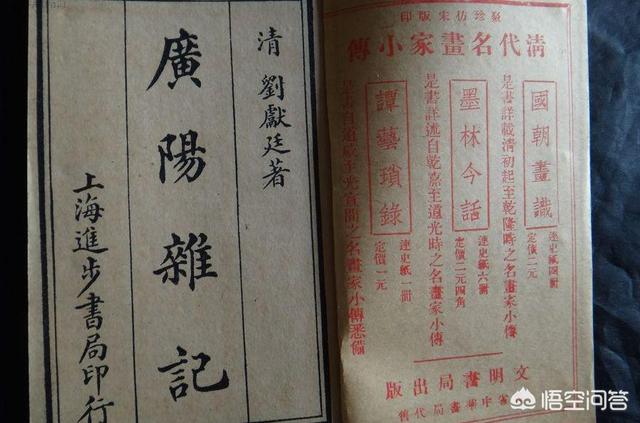 清 劉獻廷著
廣陽雜記
上海進步書局印行
聚珍仿宋版印
清代名畫家小傳
國朝畫識
連史紙四冊
定價二元
是書詳載清初起至乾隆時之名畫家小傳
墨林今話
連史紙六冊
定價二元四角
是書詳述自乾嘉至道光時之名畫家小傳
譚藝瑣錄
連史紙一冊
定價一元
道咸至光宣間之名畫家小傳悉備
文明書局出版
省中華書局代售
悟空问答